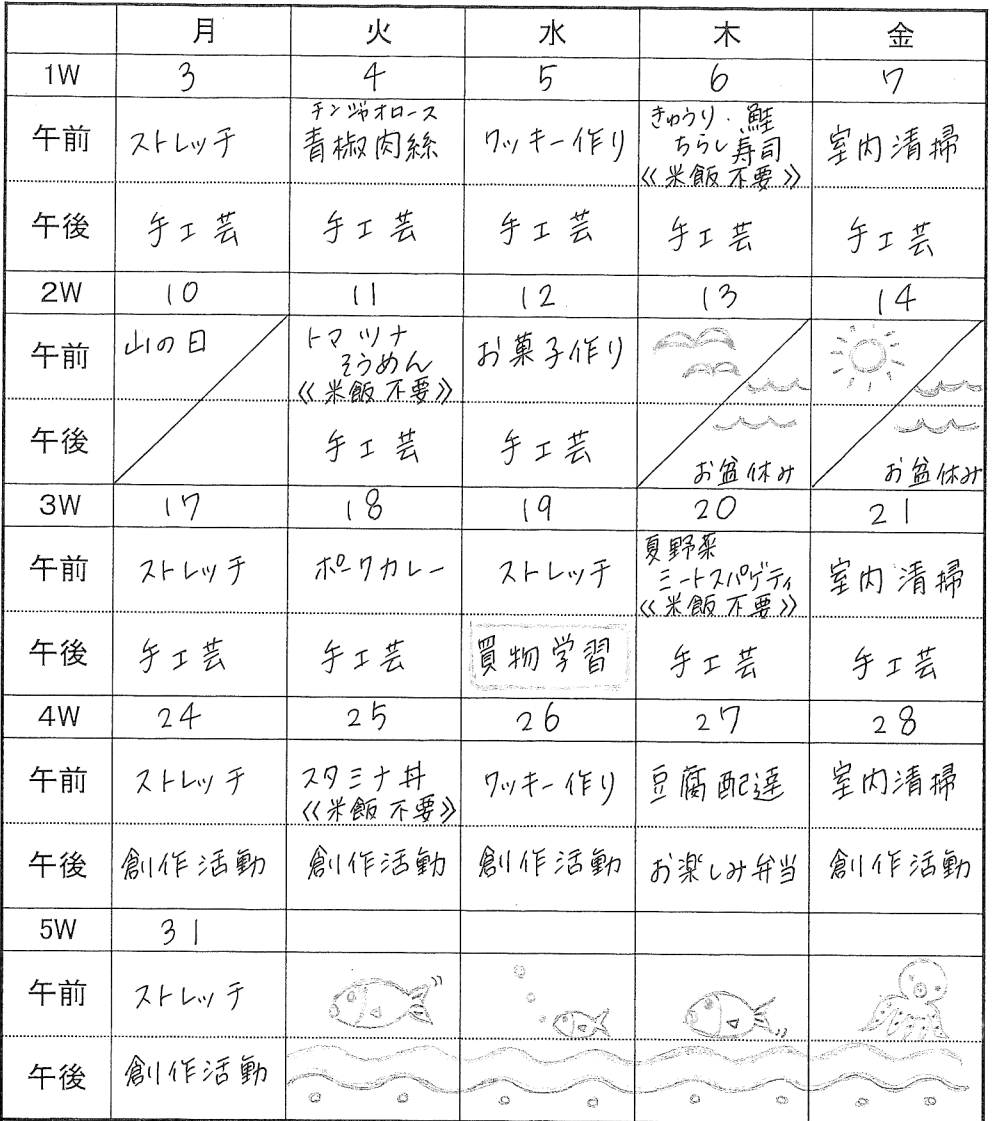 月 火 水 木 金
1W 3 4 5 6 7
午前 ストレッチ チンジャオロース 青椒肉絲 クッキー作り きゅうり・鮭 ちらし寿司 《米飯不要》 室内清掃
午後 手工芸 手工芸 手工芸 手工芸 手工芸
2W 10 11 12 13 14
午前 山の日 トマツナ そうめん 《米飯不要》 お菓子作り
午後 手工芸 手工芸 お盆休み お盆休み
3W 17 18 19 20 21
午前 ストレッチ ポークカレー ストレッチ 夏野菜 ミートスパゲティ 《米飯不要》 室内清掃
午後 手工芸 手工芸 買物学習 手工芸 手工芸
4W 24 25 26 27 28
午前 ストレッチ スタミナ丼 《米飯不要》 クッキー作り 豆腐配達 室内清掃
午後 創作活動 創作活動 創作活動 お楽しみ弁当 創作活動
5W 31
午前 ストレッチ
午後 創作活動